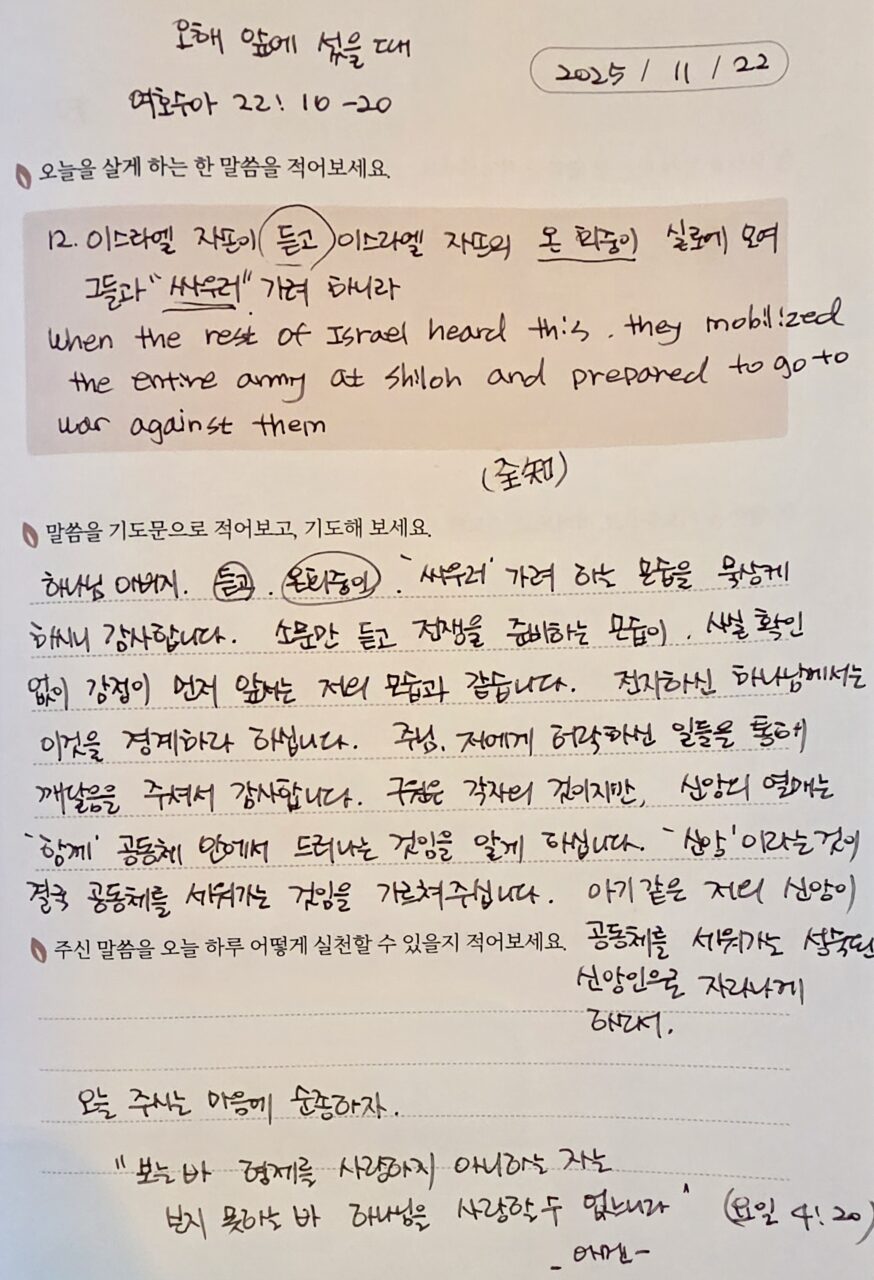 오해 앞에 섰을 때
2025 / 11 / 22
여호수아 22: 10 -20
오늘을 살게 하는 한 말씀을 적어보세요.
12. 이스라엘 자손이 듣고 이스라엘 자손의 온 회중이 실로에 모여
그들과 "싸우러" 가려 하니라
When the rest of Israel heard this. they mobilized
the entire army at shiloh and prepared to go to
war against them
(全知)
말씀을 기도문으로 적어보고, 기도해 보세요.
하나님 아버지. 듣고. 온회중이. '싸우러' 가려 하는 모습을 묵상케
하시니 감사합니다. 소문만 듣고 전쟁을 준비하는 모습이. 사실 확인
없이 감정이 먼저 앞서는 저의 모습과 같습니다. 전지하신 하나님께서는
이것을 경계하라 하십니다. 주님. 저에게 허락하신 일들을 통해
깨달음을 주셔서 감사합니다. 구원은 각자의 것이지만, 신앙의 열매는
'함께' 공동체 안에서 드러나는 것임을 알게 하십니다. '신앙'이라는것이
결국 공동체를 세워가는 것임을 가르쳐주십니다. 아기같은 저의 신앙이
공동체를 세워가는 성숙한
신앙인으로 자라나게
하소서.
주신 말씀을 오늘 하루 어떻게 실천할 수 있을지 적어보세요.
오늘 주시는 마음에 순종하자.
"보는 바 형제를 사랑하지 아니하는 자는
보지 못하는 바 하나님을 사랑할 수 없느니라" (요일 4: 20)
- 아멘 -